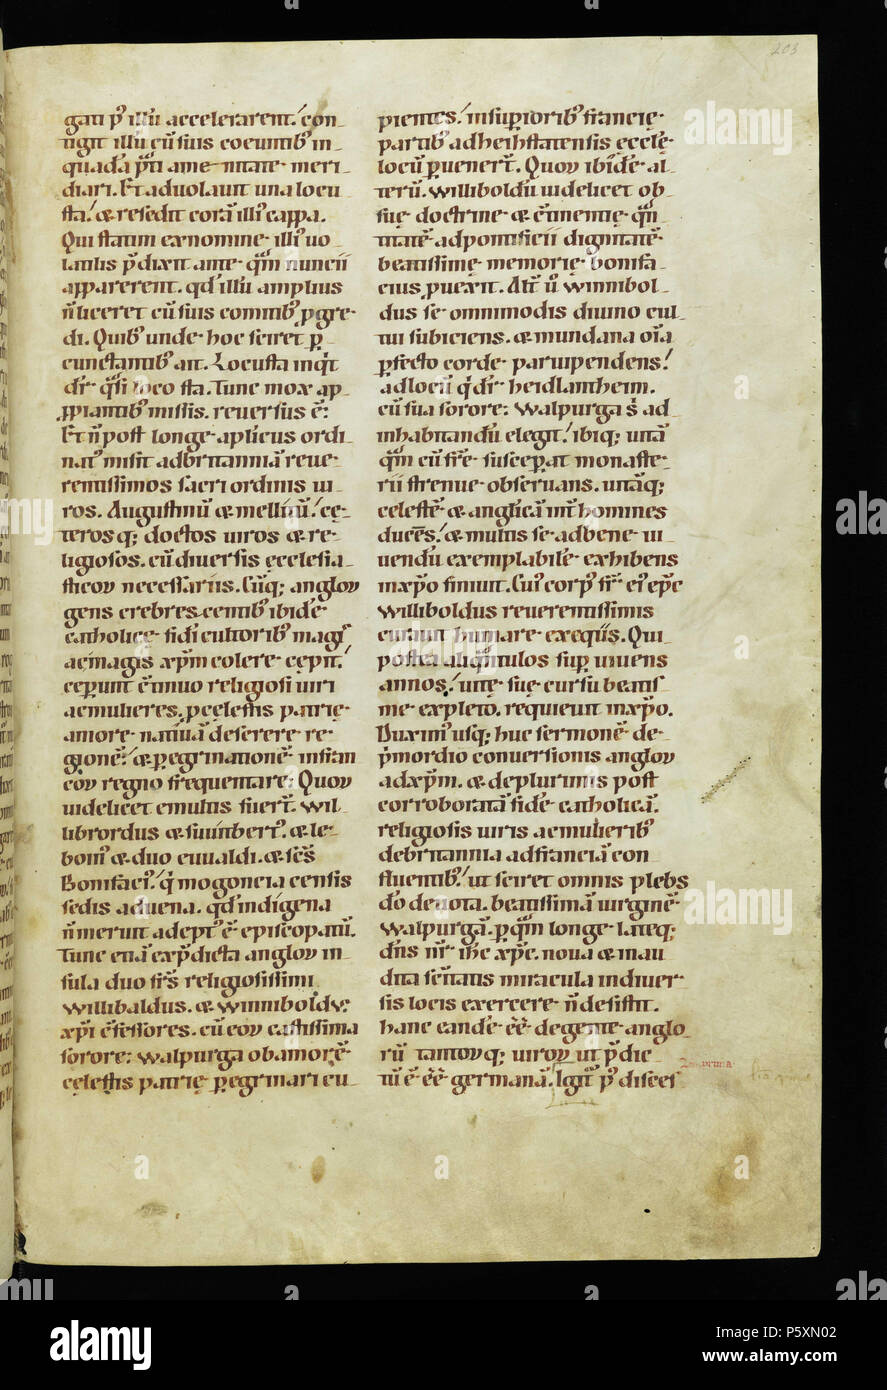 203
gati p' illu accelerarent. con
tigit illu cu suis coeuntib' in
quada pti amenitate meri
diari. Et aduolauit una locu
sta. & resedit cora illi' cappa.
Qui statim ex nomine illi' uo
catus pdixit ante qm nuncii
apparerent. qd illu amplius
n liceret cu suis comitib' pgre
di. Quib' unde hoc sciret p
cunctantib' ait. Locusta inqt
dr qsi loco sta. Tunc mox ap
ppiantib' missis. reuersus e.
Et n post longe aplicus ordi
nat' misit ad britannia reue
rentissimos sacri ordinis ui
ros. Augustinu & mellitu. ce
terosq; doctos uiros & re
ligiosos. cu diuersis ecclesia
sticoy necessariis. Cuq; angloy
gens crebrescentib' ibide
catholice fidi cultorib' magis
ac magis xpm colere cepit.
ceperunt etinuo religiosi uiri
ac mulieres. p celestis patrie
amore natiua deserere re
gione. & pegrinatione in fran
coy regno frequentare. Quoy
uidelicet e multis fuert. wil
librordus & suuinbert'. & le
boin' & duo euualdi. & scs
Bonifaci'. q mogoncia censis
sedis aduena. qd indigena
n meruit adept' e episcopatu.
Tunc etia ex pdicta angloy in
sula duo frs religiosissimi
willibaldus. & winniboldus
xpi cfessores. cu eoy castissima
sorore walpurga ob amore
celestis patrie pegrinari cu
pientes. in supiorib' francie
partib' ad heihstatensis eccle
locu puenert. Quoy ibide al
teru. williboldu uidelicet ob
sue doctrine & etinentie qm
titate ad pontificii dignitate
beatissime memorie bonifa
cius puexit. Alt' u winnibol
dus se omnimodis diuino cul
tui subiciens. & mundana oia
pfecto corde paruipendens.
ad locu q dr heidlanheim.
cu sua sorore walpurga s ad
inhabitandu elegit. ibiq; una
qm cu fre susceperat monaste
rii strenue obseruans. unaq;
celeste & anglica int homines
ducens. & multis se ad bene ui
uendu exemplabile exhibens
in xpo finiuit. Cui' corp' fr ei' epc
williboldus reuerentissimis
curauit humare exequiis. Qui
postea aliqntulos sup uiuens
annos. uite sue cursu beatis
sime expleto. requieuit in xpo.
Huximi' usq; huc sermone de
pmordio conuersionis angloy
ad xpm. & de plurimis post
corroborata fide catholica.
religiosis uiris ac mulierib'
de britannia ad francia con
fluentib'. ut sciret omnis plebs
do deuota. beatissima uirgine
walpurga. p qm longe lateq;
dns nr ihc xpc. noua & inau
dita sctitatis miracula in diuer
sis locis exercere n desistit.
hanc eande ee de gente anglo
ru tantoyq; uiroy ut pdic
tu e ee germana. Igit' p disces
alamy
Image ID: P5XN02
www.alamy.com